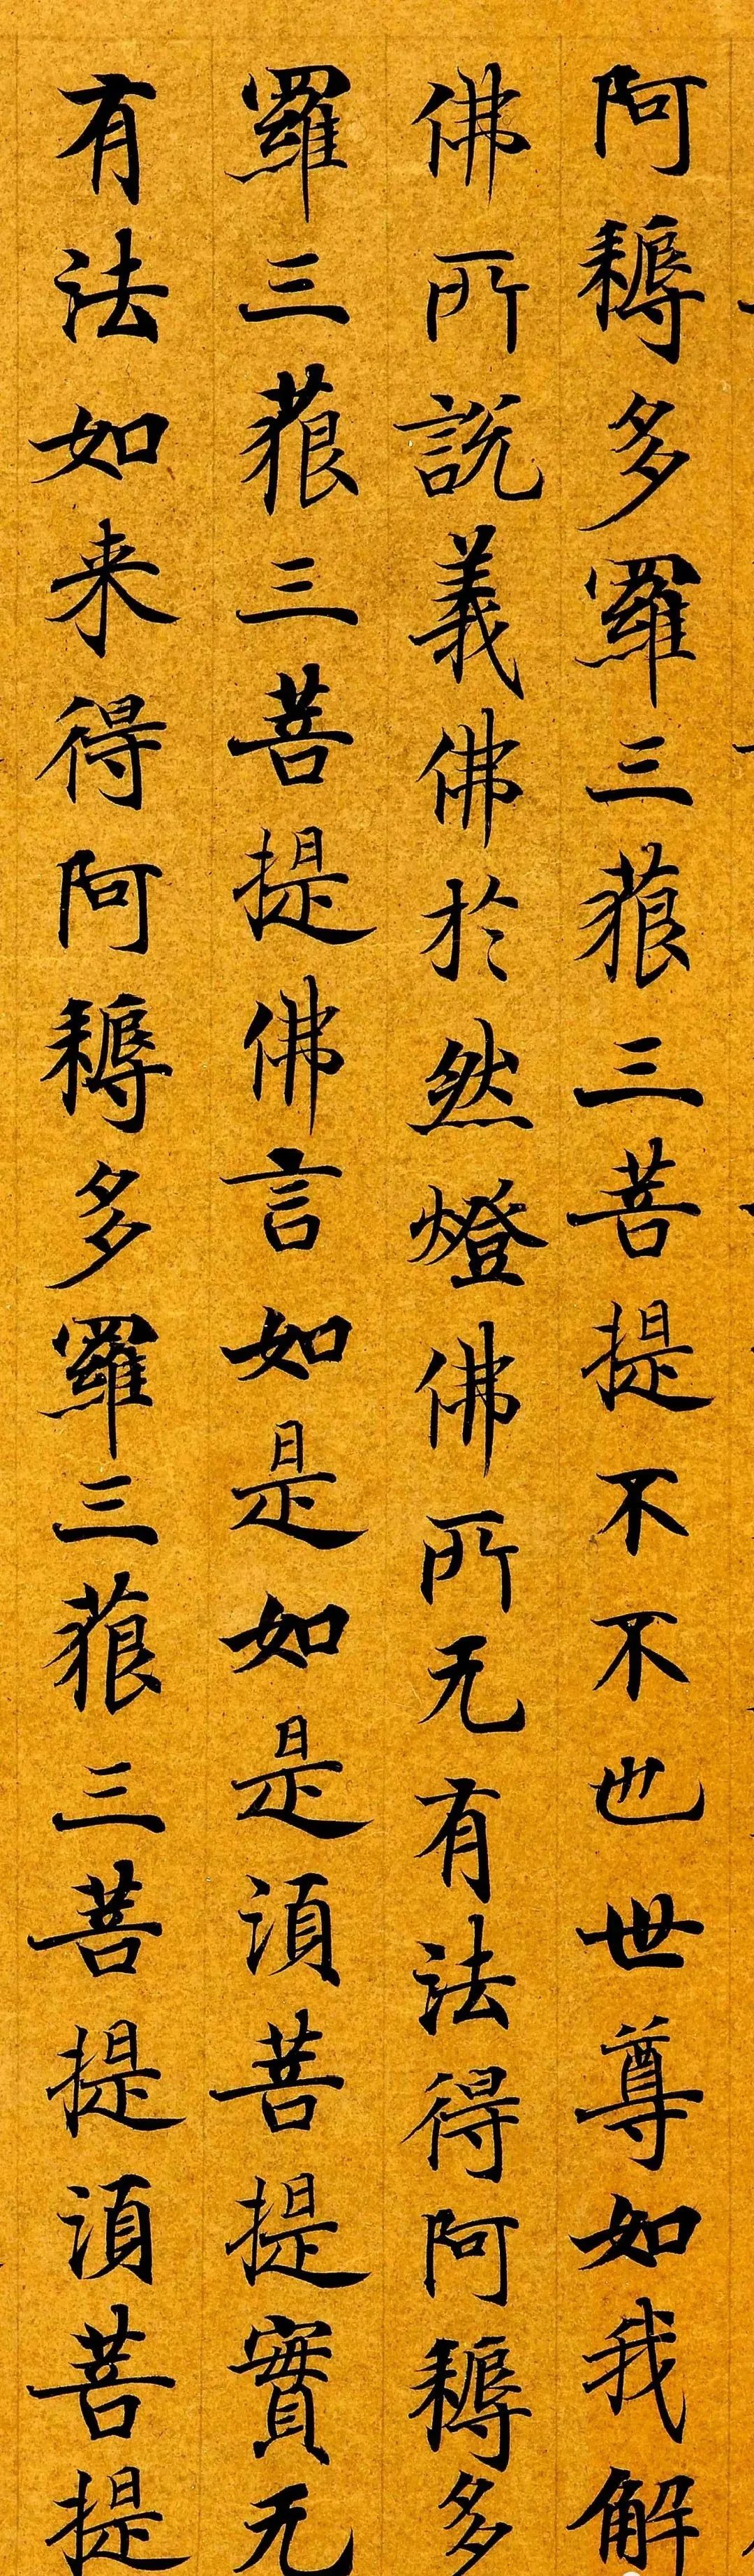 阿耨多羅三藐三菩提不不也世尊如我解
佛所說義佛於然燈佛所无有法得阿耨多
羅三藐三菩提佛言如是如是須菩提實无
有法如来得阿耨多羅三藐三菩提須菩提